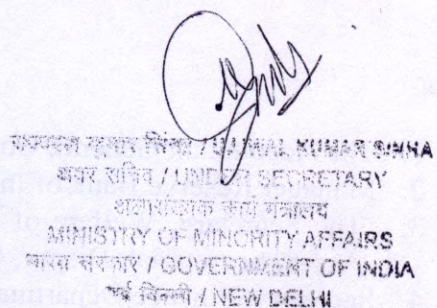 उज्ज्वल कुमार सिंहा / UJJWAL KUMAR SINHA
अवर सचिव / UNDER SECRETARY
अल्पसंख्यक कार्य मंत्रालय
MINISTRY OF MINORITY AFFAIRS
भारत सरकार / GOVERNMENT OF INDIA
नई दिल्ली / NEW DELHI